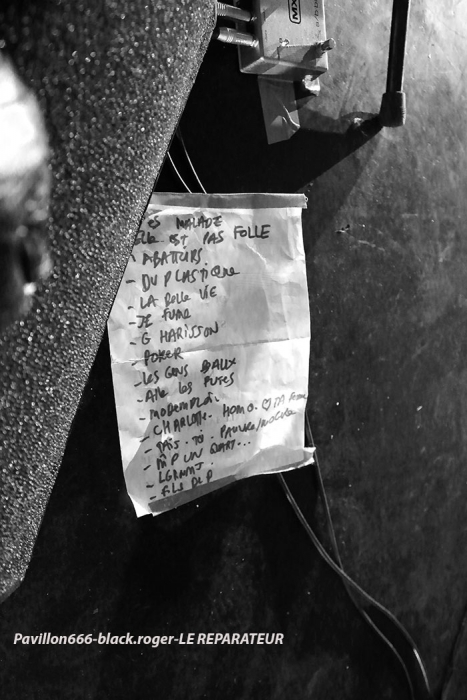 MX
ES MALADE
Elle EST PAS FOLLE
- ABATTEURS.
- DU PLASTIQUE
- LA Belle VIE
- JE FUME
- G HARISSON
- POKER
- LES GENS BEAUX
- Aile les PUCES
- MODEMPLOI.
- CHARLOTTE. HOMO. ♡ TA Femme
- TAIS. TOI. PAUVRE/
- M P UN QUART...
- LGRAND.
- FILS DE P
Pavillon666-black.roger-LE REPARATEUR